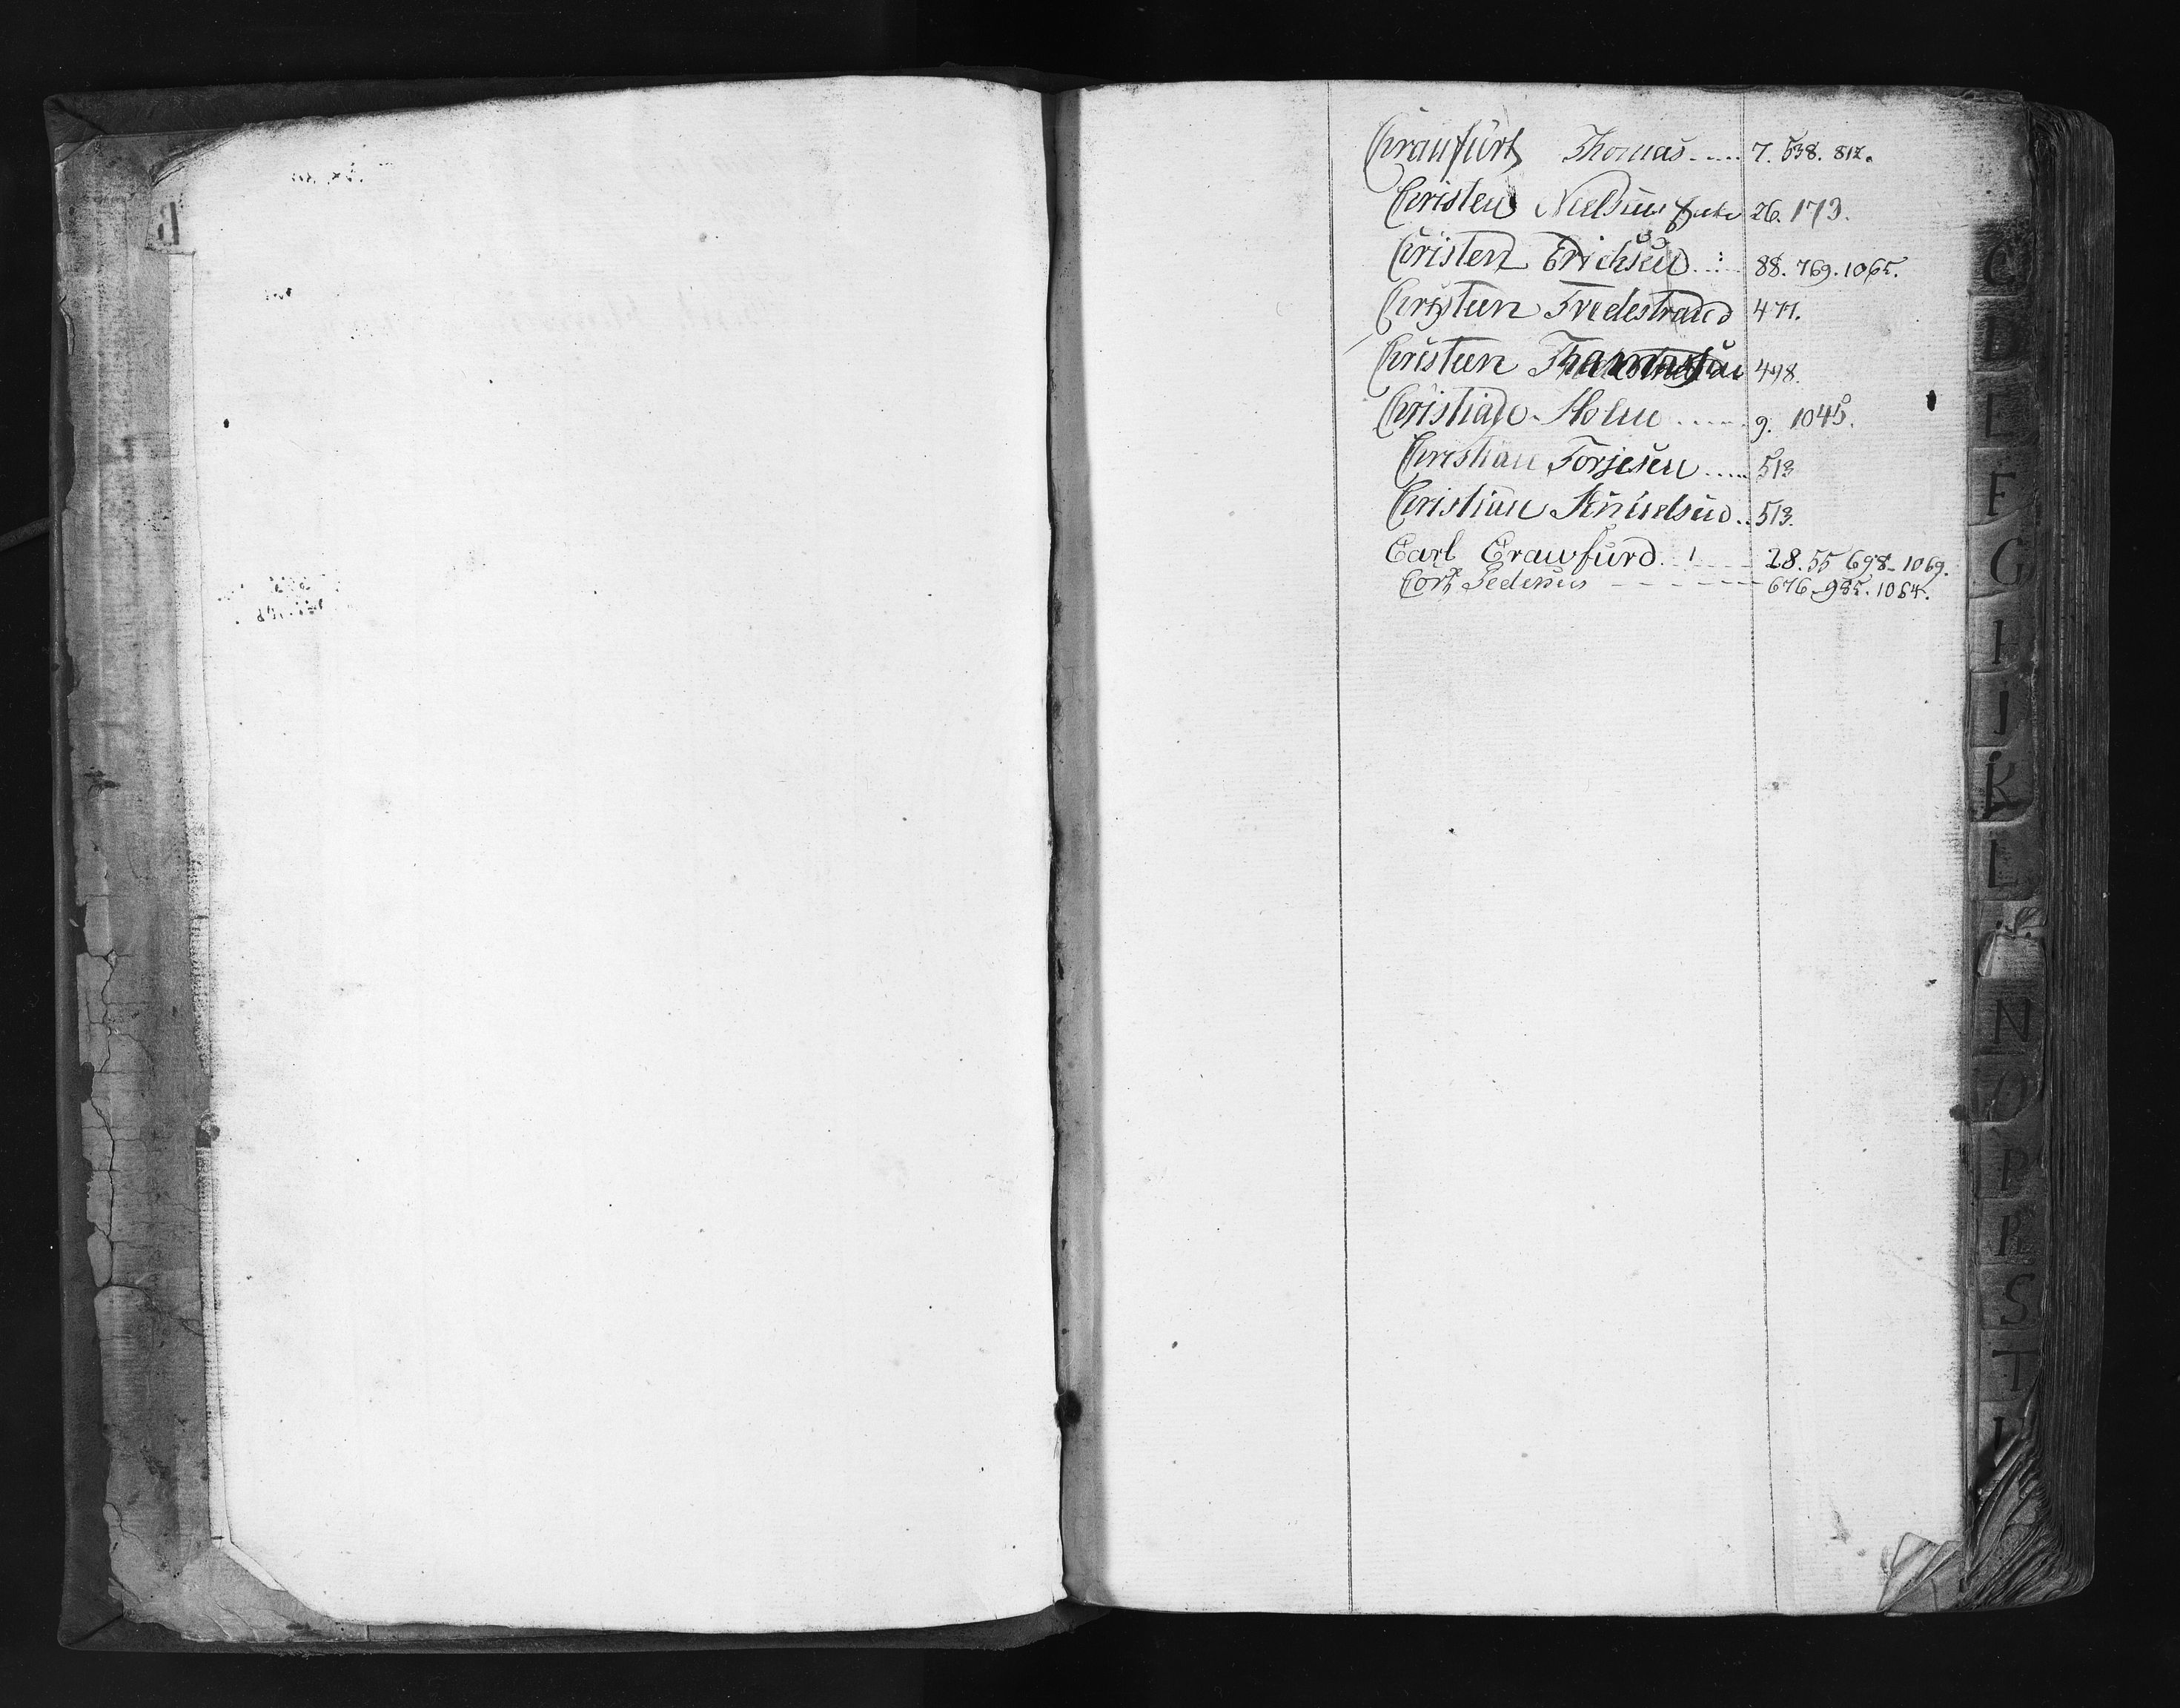 B
Craufurt Thomas ..... 7. 538. 812.
Christen Nielsen 26. 173.
Christen Erichsen ..... 88. 769. 1065.
Christen Tvedestrand 477.
Christen 498.
Christian Holm ...... 9. 1045.
Christian Torjesen ..... 513
Christian Knudsen .. 513.
Carl Crawfurd. 28. 55 698- 1069.
Cort Pedersen - - - - 676-985. 1064.
C
D
E
F
G
H
I
K
L
N
O
P
R
S
T